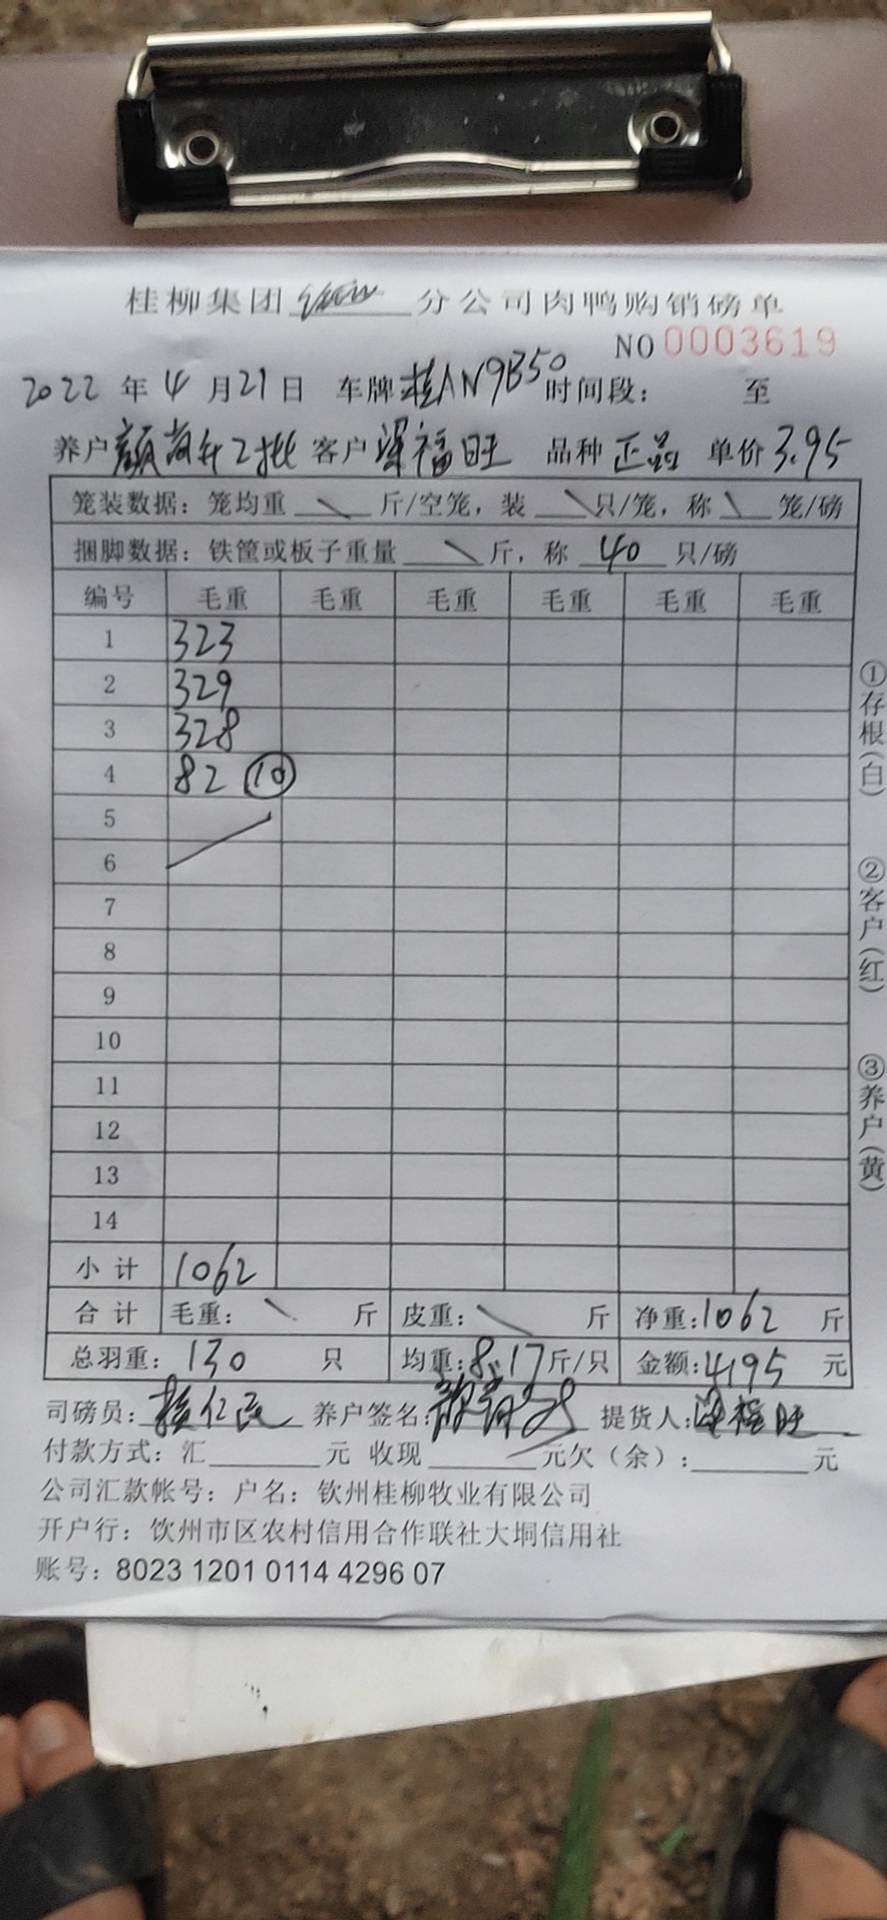 桂柳集团 分公司肉鸭购销磅单
NO 0003619
2022 年 4 月 21 日 车牌 桂AN9B50 时间段: 至
养户 2批 客户 梁福旺 品种 正品 单价 3.95
笼装数据: 笼均重 \ 斤/空笼, 装 \ 只/笼, 称 \ 笼/磅
捆脚数据: 铁筐或板子重量 \ 斤, 称 40 只/磅
编号 毛重 毛重 毛重 毛重 毛重 毛重
1 323
2 329
3 328
4 82 ⑩
5
6
7
8
9
10
11
12
13
14
小计 1062
合计 毛重: \ 斤 皮重: \ 斤 净重: 1062 斤
总羽重: 130 只 均重: 8.17 斤/只 金额: 4195 元
司磅员: 养户签名: 提货人: 梁福旺
付款方式: 汇 元 收现 元欠(余): 元
公司汇款帐号: 户名: 钦州桂柳牧业有限公司
开户行: 钦州市区农村信用合作联社大垌信用社
账号: 8023 1201 0114 4296 07
①存根(白)
②客户(红)
③养户(黄)